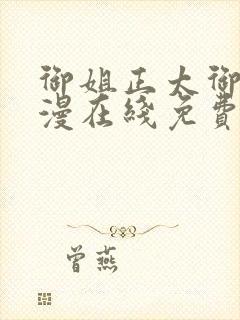 御姐正太御
漫在线免費
曾燕